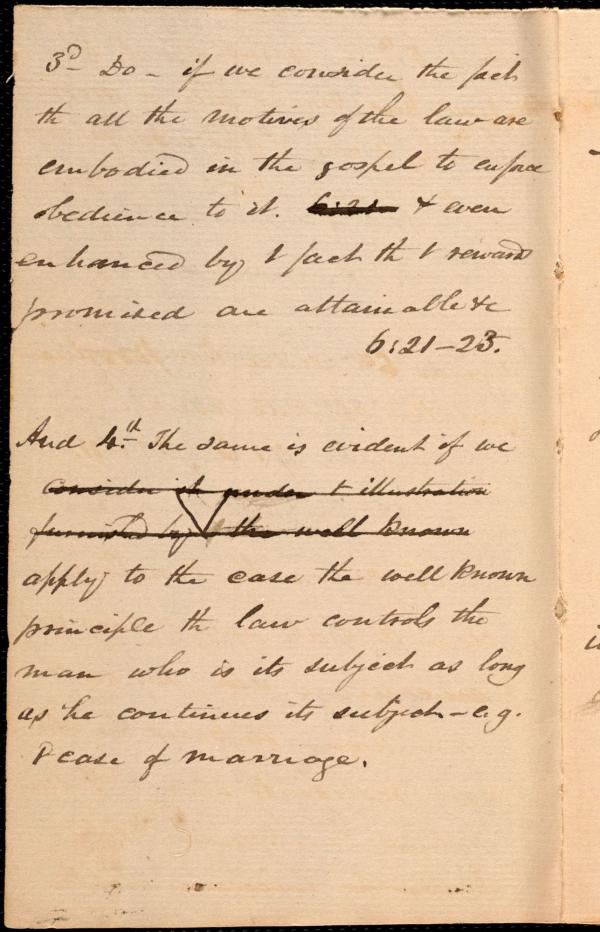 3d Do - if we consider the fact
th all the motives of the law are
embodied in the gospel to enforce
obedience to it. 6:21 & even
enhanced by t fact th t reward
promised are attainable &c
6:21-23.
And 4.th The same is evident if we
consider it under t illustration
furnished by the well known
apply to the case the well known
principle th law controls the
man who is its subject as long
as he continues its subject - e.g.
t case of marriage.